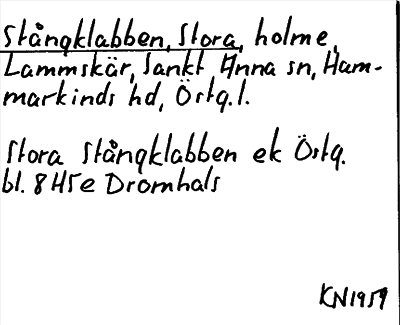 Stångklabben, Stora, holme,
Lammskär, Sankt Anna sn, Ham-
markinds hd, Östg.l.
Stora Stångklabben ek Östg.
bl. 8H5e Dromhals
KN1959